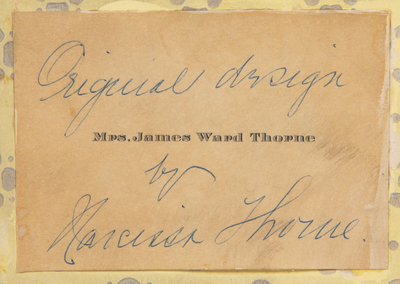 Original design
Mrs. James Ward Thorne
by
Narcissa Thorne.